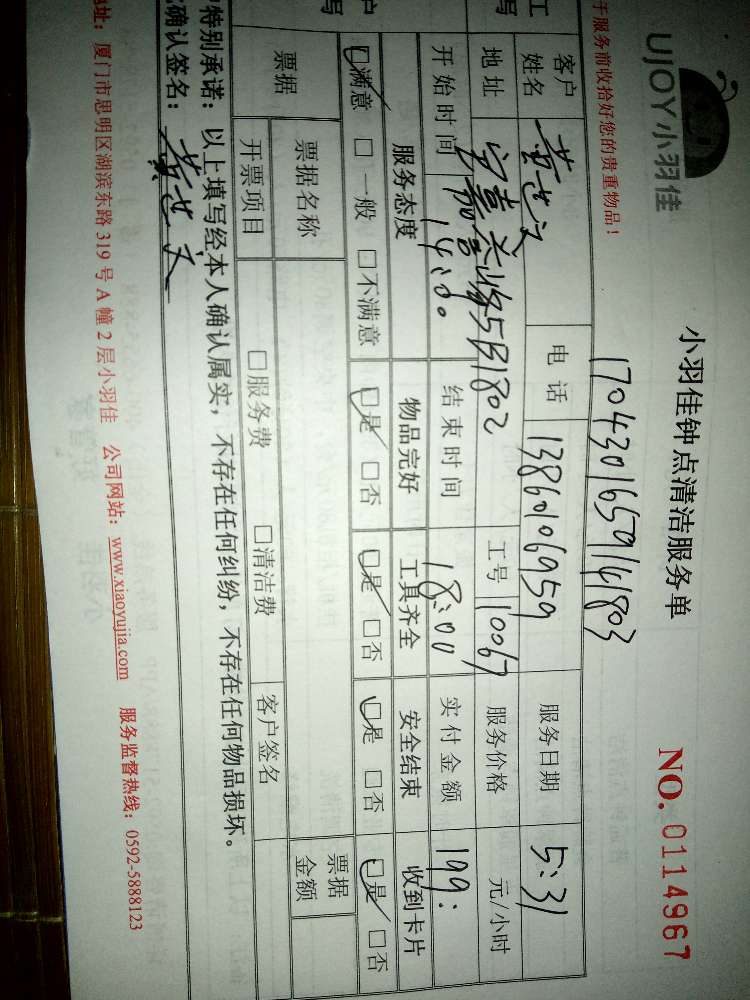 UJOY小羽佳
小羽佳钟点清洁服务单
NO. 0114967
于服务前收拾好您的贵重物品！
1704301659141803
客户姓名 黄世文 电话 13860106959 服务日期 5:31
地址 5B1802 工号 10067 服务价格 元/小时
开始时间 14:00 结束时间 18:00 实付金额 199:
服务态度 物品完好 工具齐全 安全结束 收到卡片
□满意 □一般 □不满意 □是 □否 □是 □否 □是 □否 □是 □否
票据 票据名称 票据金额
开票项目 □服务费 □清洁费 客户签名
特别承诺：以上填写经本人确认属实，不存在任何纠纷，不存在任何物品损坏。
确认签名：黄世文
址：厦门市思明区湖滨东路 319 号 A 幢 2 层小羽佳 公司网站：www.xiaoyujia.com 服务监督热线：0592-5888123